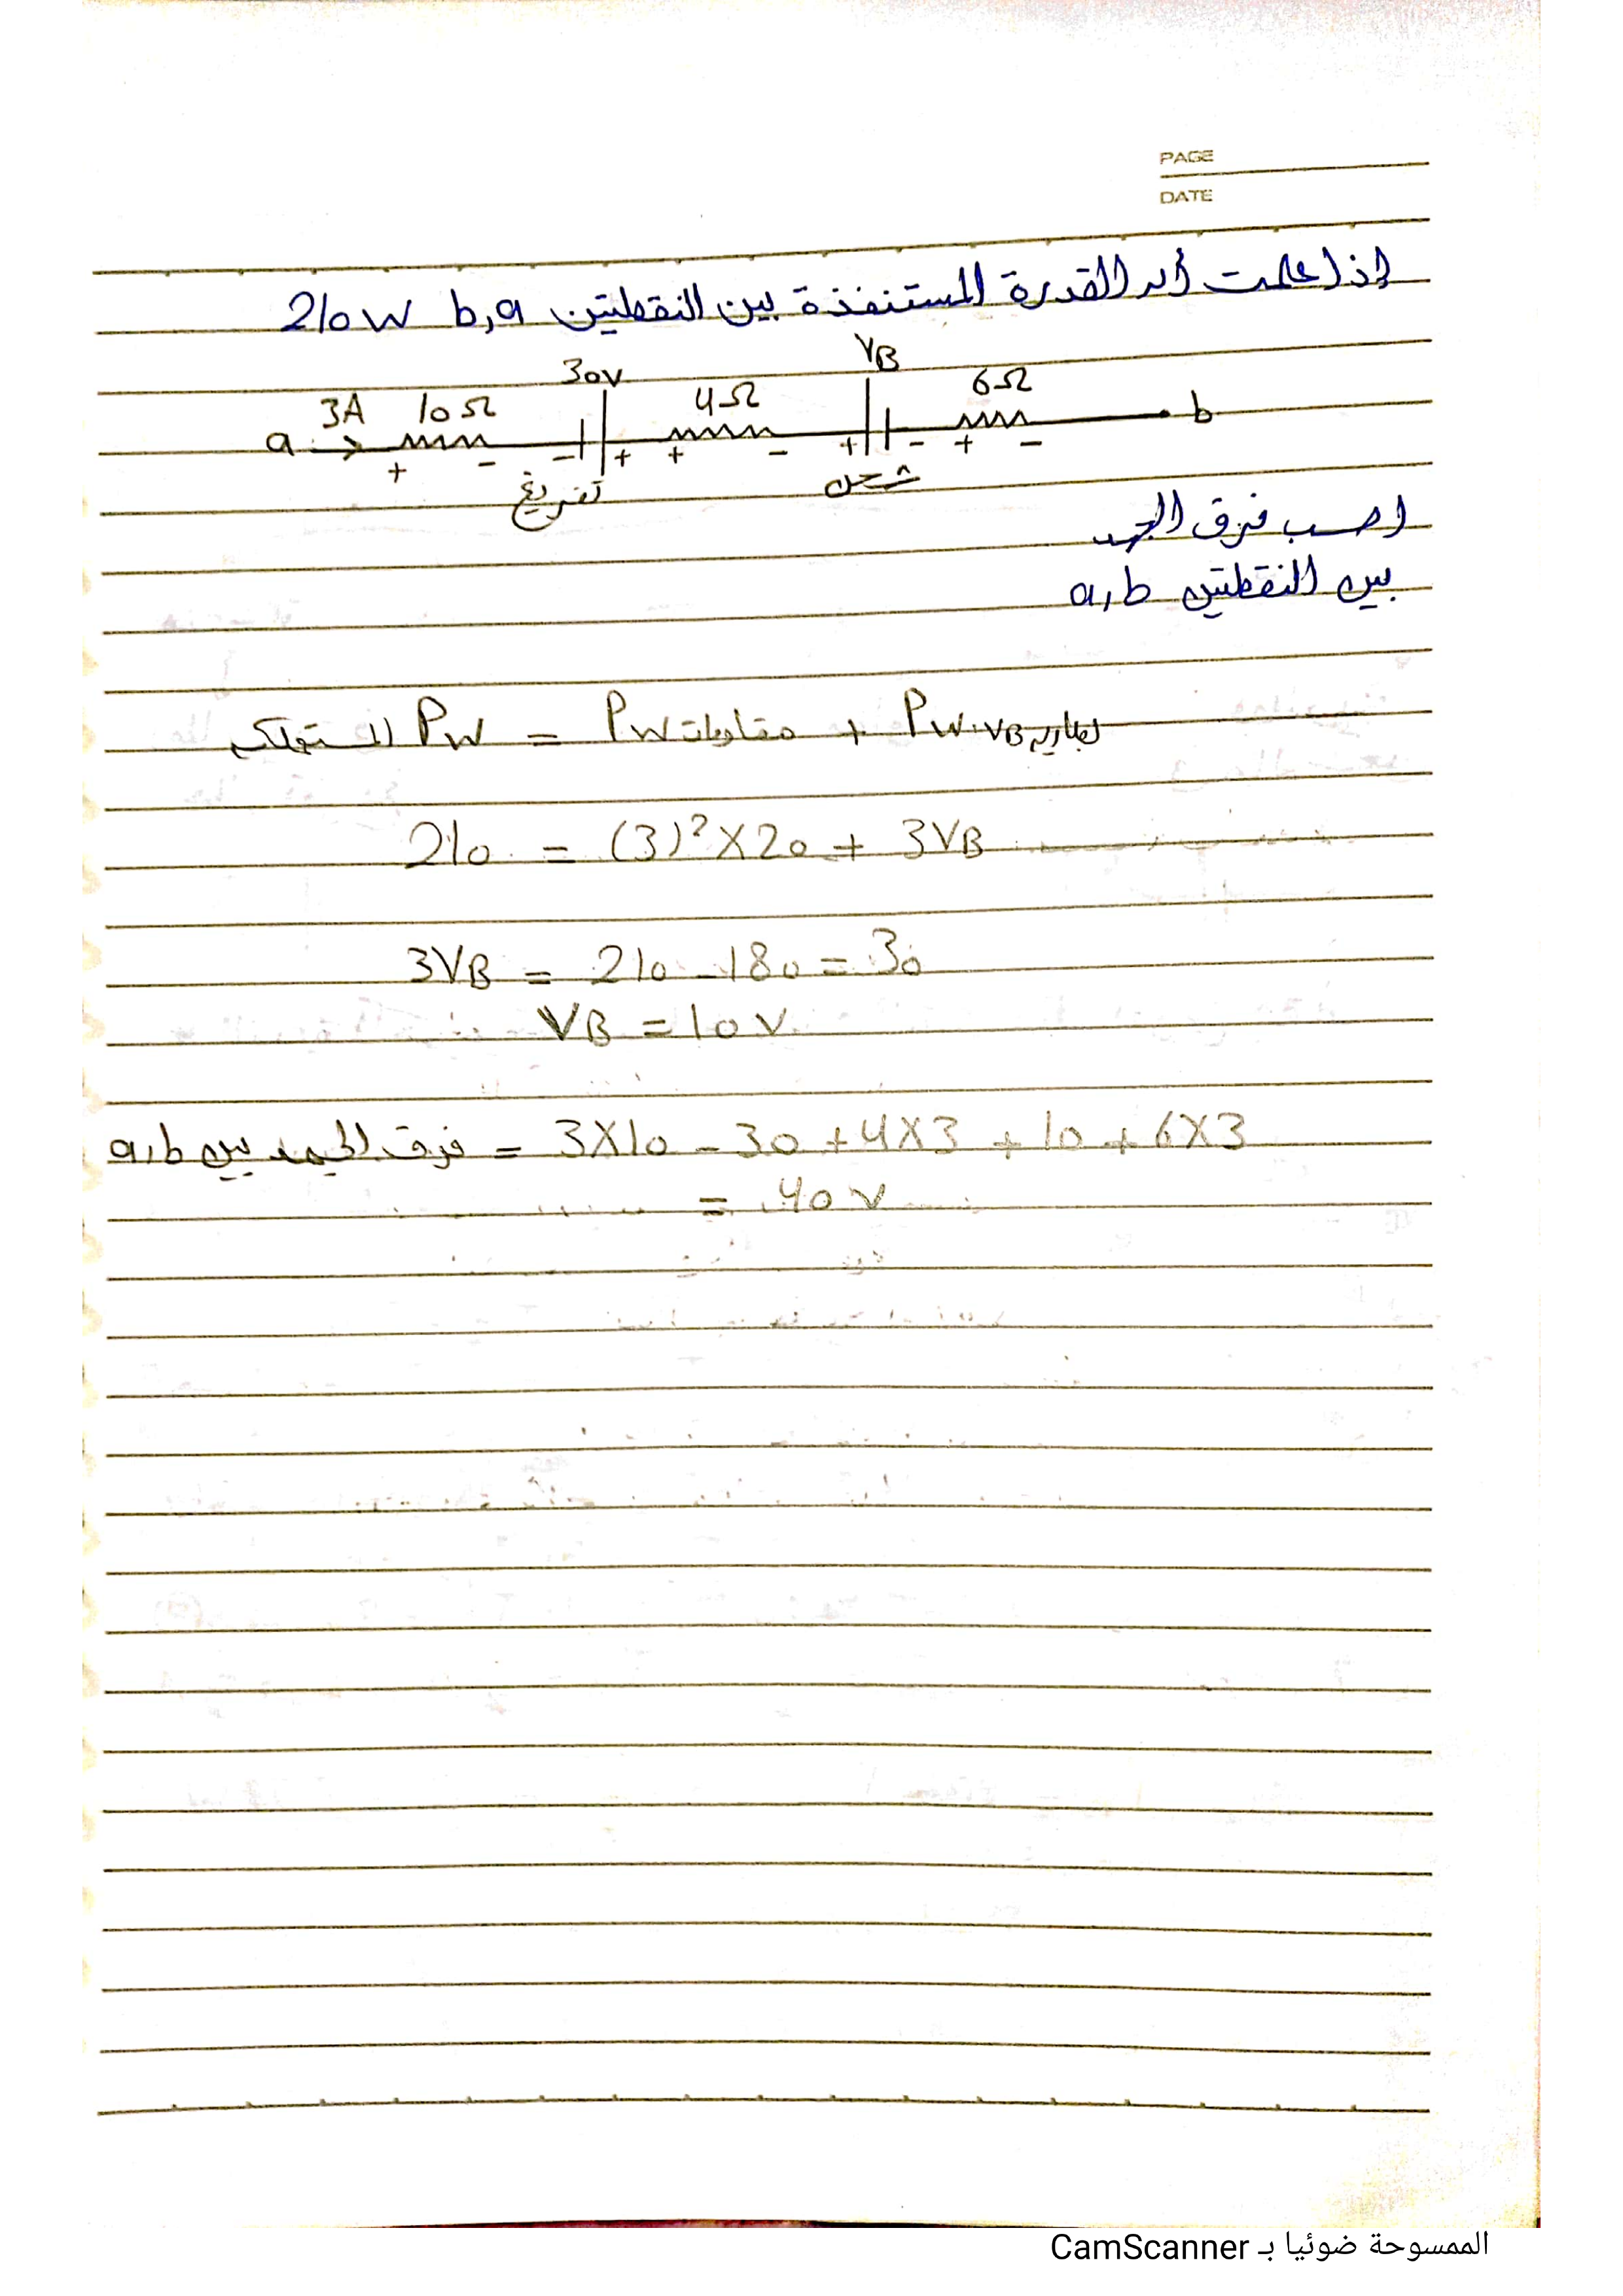 PAGE
DATE
إذا علمت أن القدرة المستنفذة بين النقطتين b,a 210W
3A 10Ω 30V 4Ω VB 6Ω
a b
+ - - + + - + - + -
تفريغ شحن
احسب فرق الجهد
بين النقطتين a,b
المستهلكه Pw = Pw مقاومات + Pw.VB بطاريه
210 = (3)² X 20 + 3VB
3VB = 210 - 180 = 30
VB = 10V
فرق الجهد بين a,b = 3X10 - 30 + 4X3 + 10 + 6X3
= 40V
الممسوحة ضوئيا بـ CamScanner